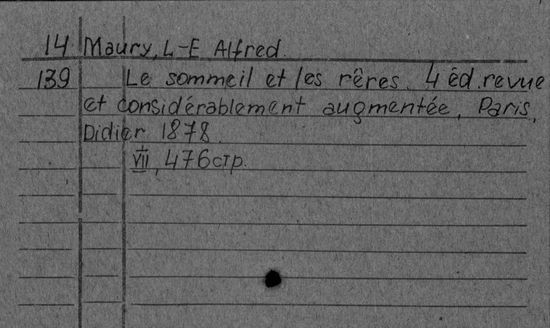 14 Maury, L-E Alfred.
139 Le sommeil et les rêres. 4 éd. revue
et considérablement augmentée, Paris,
Didier 1878.
VII, 476 стр.